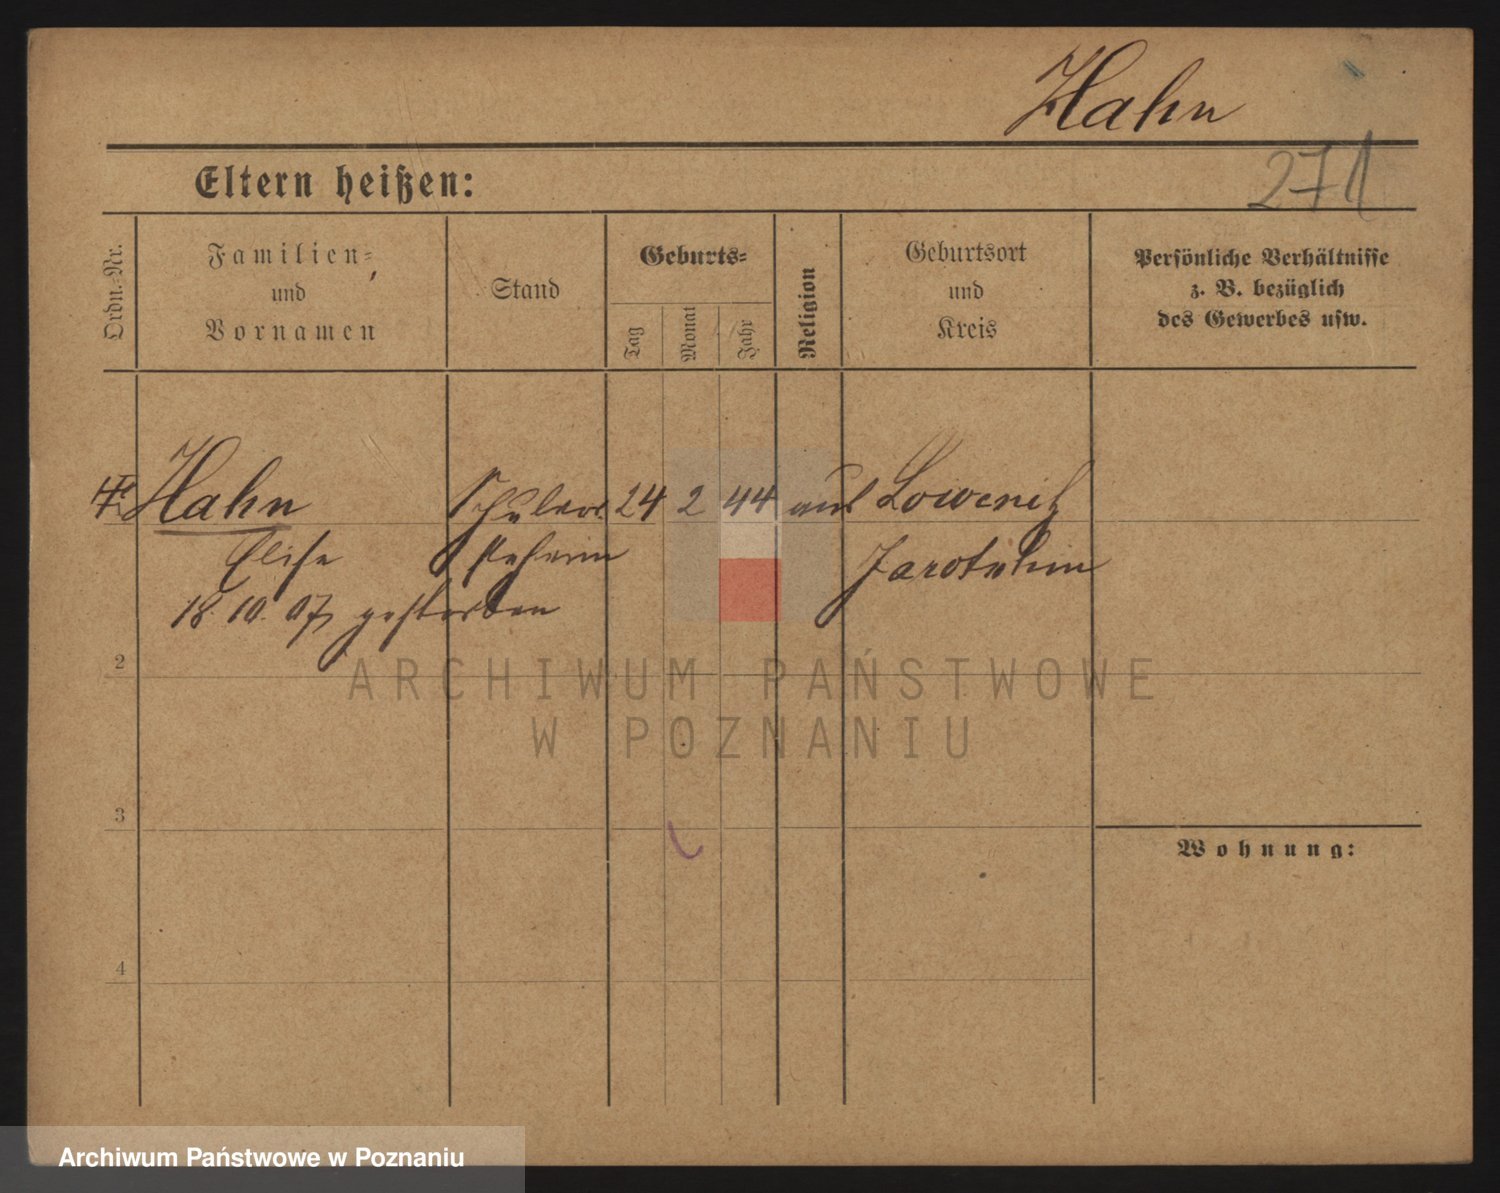 Hahn
271
Eltern heißen:
Ordn.-Nr.
Familien-
und
Vornamen
Stand
Geburts-
Tag
Monat
Jahr
Religion
Geburtsort
und
Kreis
Persönliche Verhältnisse
z. B. bezüglich
des Gewerbes usw.
Hahn 24 2 44
Elise Jarotschin
18. 10. 07 gestorben
2
3
4
Wohnung:
ARCHIWUM PAŃSTWOWE
W POZNANIU
Archiwum Państwowe w Poznaniu